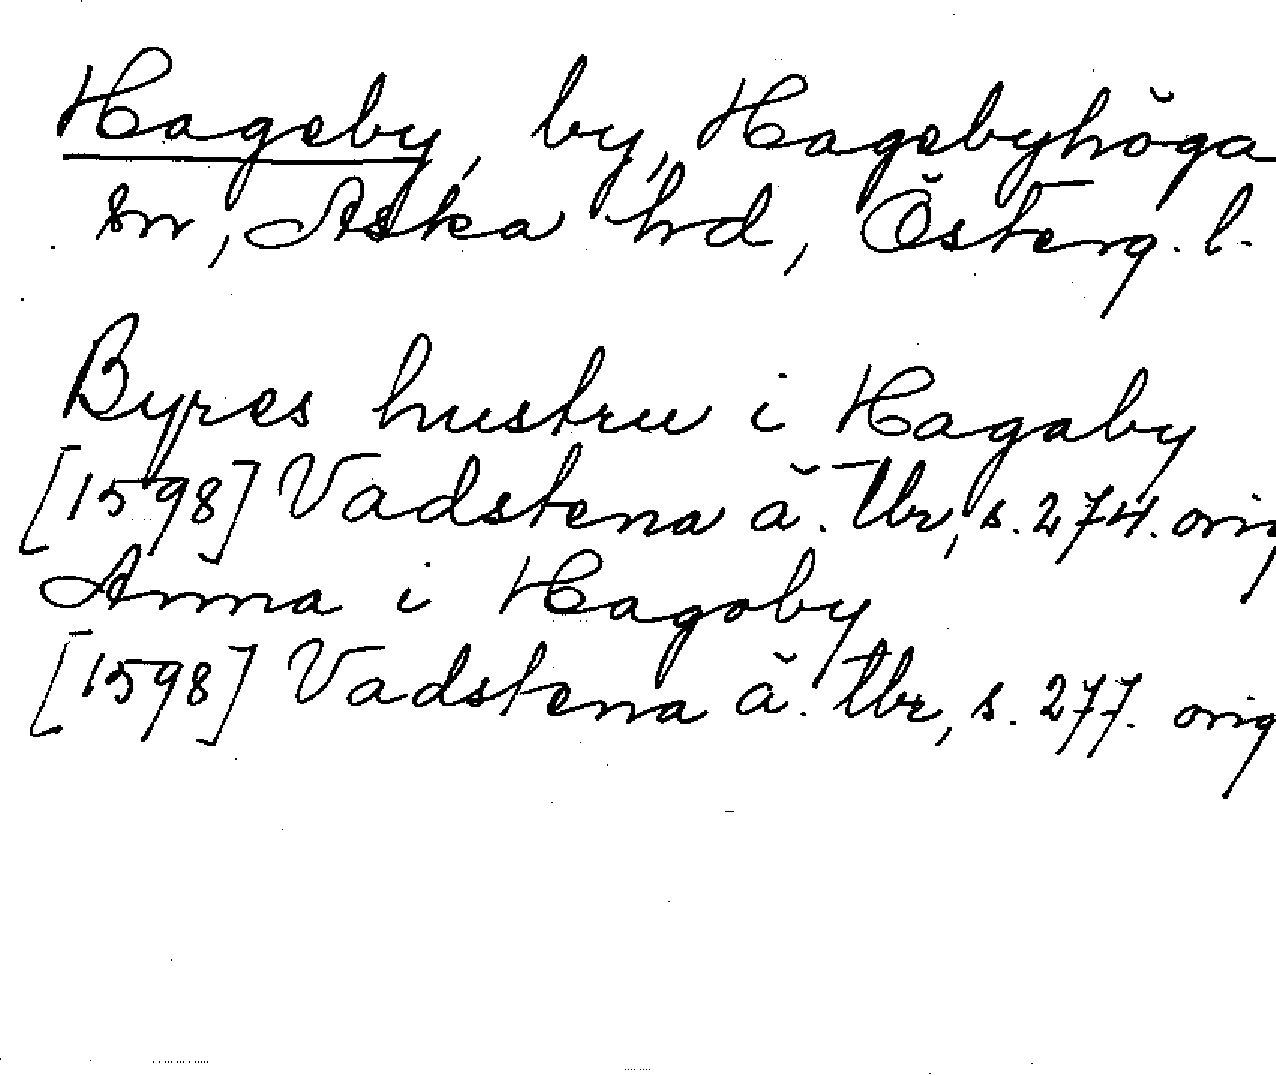 Hageby, by, Hagebyhöga
sn, Aska hd, Österg. l.
Byres hustru i Hagaby
[1598] Vadstena ä. tbr, s. 274. orig
Anna i Hagaby
[1598] Vadstena ä. tbr, s. 277. orig